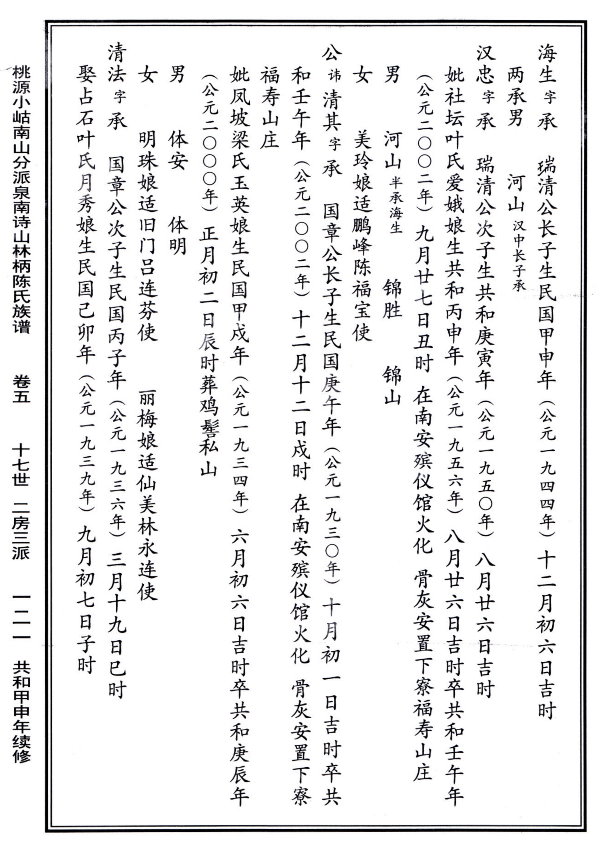 海生 字 承 瑞清公长子生民国甲申年（公元一九四四年）十二月初六日吉时
两承男 河山 汉中长子承
汉忠 字 承 瑞清公次子生共和庚寅年（公元一九五〇年）八月廿六日吉时
妣社坛叶氏爱娥娘生共和丙申年（公元一九五六年）八月廿六日吉时卒共和壬午年
（公元二〇〇二年）九月廿七日丑时 在南安殡仪馆火化 骨灰安置下寮福寿山庄
男 河山 半承海生 锦胜 锦山
女 美玲娘适鹏峰陈福宝使
公 讳 清其 字 承 国章公长子生民国庚午年（公元一九三〇年）十月初一日吉时卒共
和壬午年（公元二〇〇二年）十二月十二日戌时 在南安殡仪馆火化 骨灰安置下寮
福寿山庄
妣凤坡梁氏玉英娘生民国甲戌年（公元一九三四年）六月初六日吉时卒共和庚辰年
（公元二〇〇〇年）正月初二日辰时葬鸡髻私山
男 体安 体明
女 明珠娘适旧门吕连芬使 丽梅娘适仙美林永连使
清法 字 承 国章公次子生民国丙子年（公元一九三六年）三月十九日巳时
娶占石叶氏月秀娘生民国己卯年（公元一九三九年）九月初七日子时
桃源小岵南山分派泉南诗山林柄陈氏族谱 卷五 十七世 二房三派 一二一 共和甲申年续修